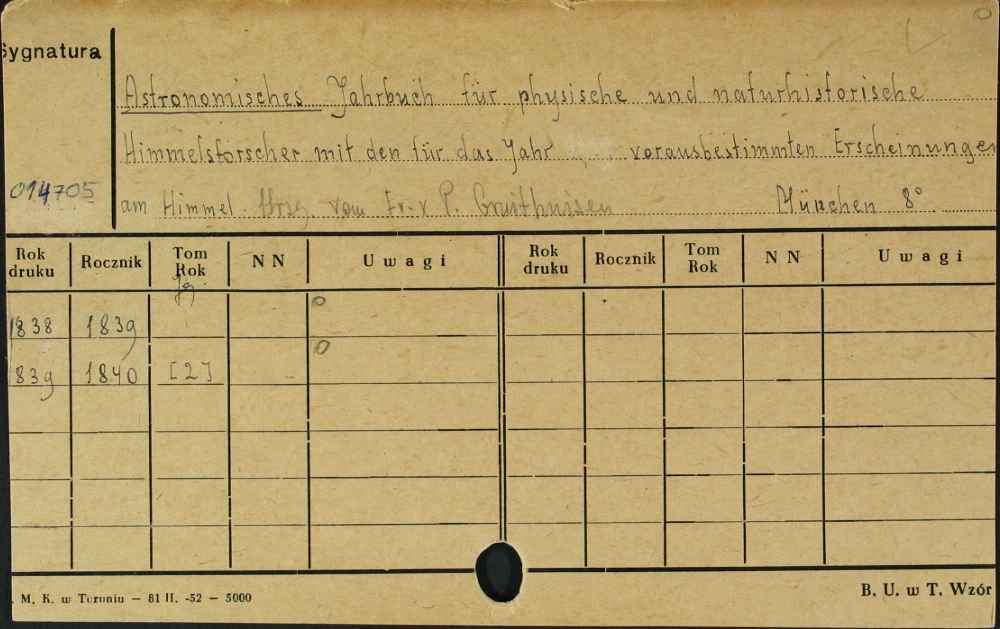 Sygnatura
Astronomisches Jahrbuch für physische und naturhistorische
Himmelsforscher mit den für das Jahr ... vorausbestimmten Erscheinungen
014705
am Himmel. Hrsg. vom Fr. v P. Gruithuisen München 8°.
Rok druku Rocznik Tom Rok NN Uwagi Rok druku Rocznik Tom Rok NN Uwagi
Jg.
1838 1839 0
1839 1840 [2] 0
M. K. w Toruniu — 81 II. -52 — 5000 B. U. w T. Wzór